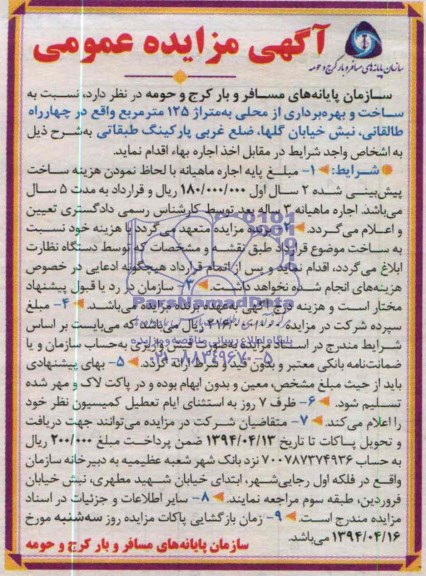 آگهی مزایده عمومی
سازمان پایانه‌های مسافر و بار کرج و حومه
سازمان پایانه‌های مسافر و بار کرج و حومه در نظر دارد، نسبت به
ساخت و بهره‌برداری از محلی به‌متراژ ۱۲۵ مترمربع واقع در چهارراه
طالقانی، نبش خیابان گلها، ضلع غربی پارکینگ طبقاتی به‌شرح ذیل
به اشخاص واجد شرایط در مقابل اخذ اجاره بهاء اقدام نماید.
شرایط: ۱- مبلغ پایه اجاره ماهیانه با لحاظ نمودن هزینه ساخت
پیش‌بینی شده ۲ سال اول ۱۸۰/۰۰۰/۰۰۰ ریال و قرارداد به مدت ۵ سال
می‌باشد. اجاره ماهیانه ۳ ساله بعد توسط کارشناس رسمی دادگستری تعیین
و اعلام می‌گردد. ۲- برنده مزایده متعهد می‌گردد با هزینه خود نسبت
به ساخت موضوع قرارداد طبق نقشه و مشخصات که توسط دستگاه نظارت
ابلاغ می‌گردد، اقدام نماید و پس از اتمام قرارداد هیچگونه ادعایی در خصوص
هزینه‌های انجام شده نخواهد داشت. ۳- سازمان در رد یا قبول پیشنهاد
مختار است و هزینه درج آگهی به‌عهده برنده مزایده می‌باشد. ۴- مبلغ
سپرده شرکت در مزایده ریال می‌باشد که می‌بایست بر اساس
شرایط مندرج در اسناد مزایده به‌صورت فیش واریزی به‌حساب سازمان و یا
ضمانت‌نامه بانکی معتبر و بدون قید و شرط ارائه گردد. ۵- بهای پیشنهادی
باید از حیث مبلغ مشخص، معین و بدون ابهام بوده و در پاکت لاک و مهر شده
تسلیم شود. ۶- ظرف ۷ روز به استثنای ایام تعطیل کمیسیون نظر خود
را اعلام می‌کند. ۷- متقاضیان شرکت در مزایده می‌توانند جهت دریافت
و تحویل پاکات تا تاریخ ۱۳۹۴/۰۴/۱۳ ضمن پرداخت مبلغ ۲۰۰/۰۰۰ ریال
به حساب ۷۰۰۷۸۷۳۷۴۹۳۶ نزد بانک شهر شعبه عظیمیه به دبیرخانه سازمان
واقع در فلکه اول رجایی‌شهر، ابتدای خیابان شهید مطهری، نبش خیابان
فروردین، طبقه سوم مراجعه نمایند. ۸- سایر اطلاعات و جزئیات در اسناد
مزایده مندرج است. ۹- زمان بازگشایی پاکات مزایده روز سه‌شنبه مورخ
۱۳۹۴/۰۴/۱۶ می‌باشد.
سازمان پایانه‌های مسافر و بار کرج و حومه
ParsNamadData
پایگاه اطلاع رسانی مناقصه و مزایده
۰۲۱-۸۸۳۴۹۶۷۰-۵